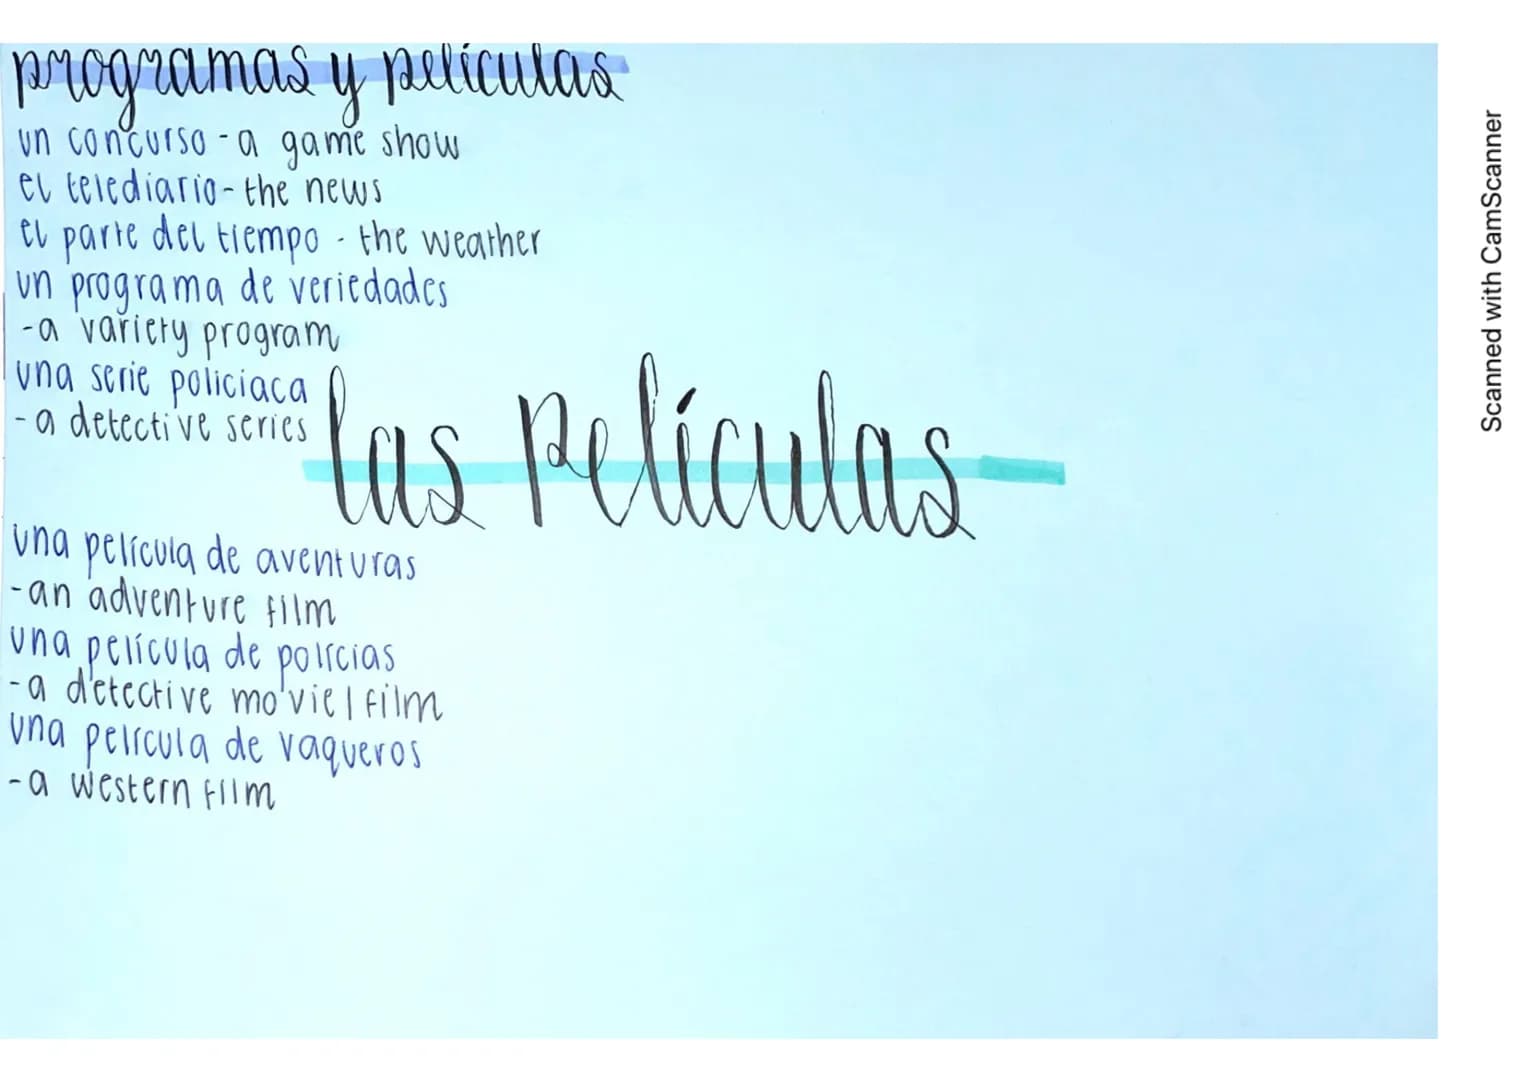 programas y películas
un concurso - a game show
el telediario - the news
el parte del tiempo - the weather
un programa de veriedades
- a variety program
una serie policiaca
- a detective series
las películas
una película de aventuras
- an adventure film
una película de polícias
- a detective movie / film
una película de vaqueros
- a western film
Scanned with CamScanner